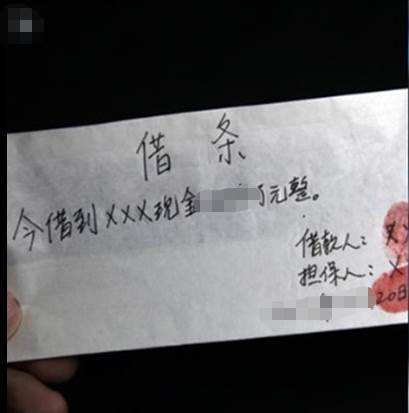 借条
今借到XXX现金元整。
借款人：X
担保人：X
年 20日